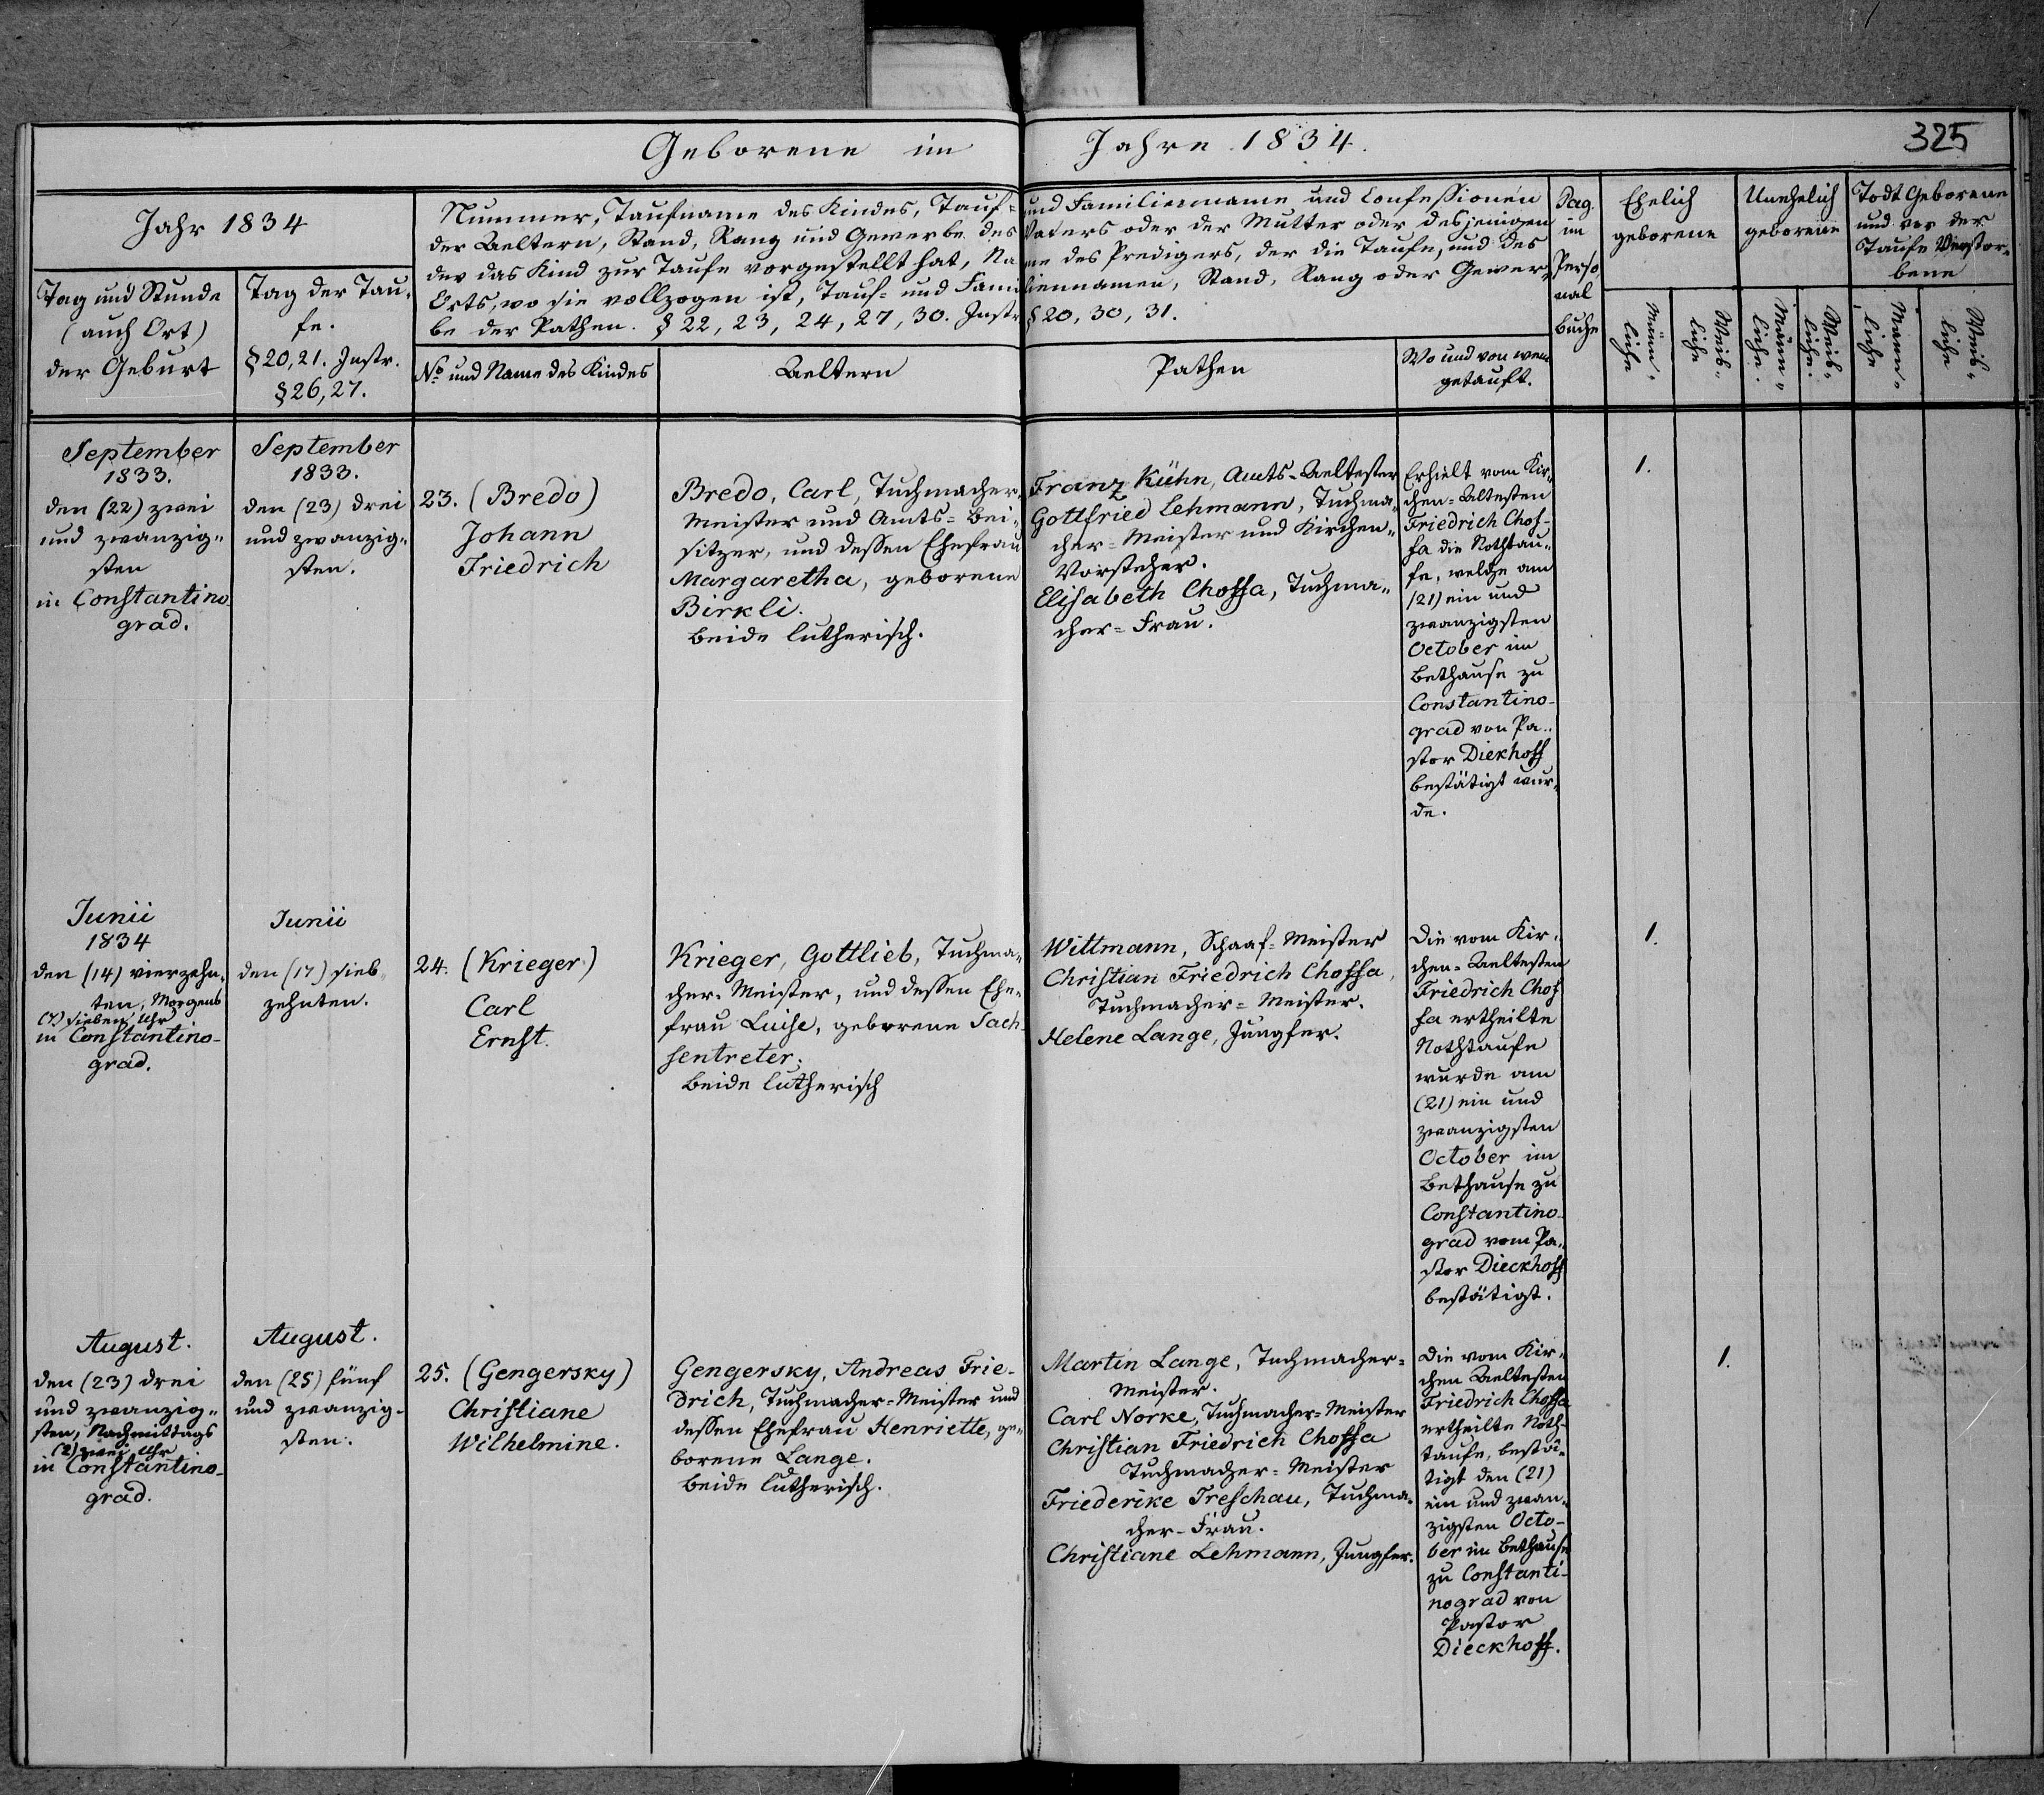 Geborene im Jahre 1834.
325
Jahr 1834
Tag und Stunde
(auch Ort)
der Geburt
Tag der Tau-
fe.
§ 20, 21. Instr.
§ 26, 27.
Nummer, Taufname des Kindes, Tauf- und Familienname und Confessionen
der Aeltern, Stand, Rang und Gewerbe des Vaters oder der Mutter oder desjenigen
der das Kind zur Taufe vorgestellt hat, Name des Predigers, der die Taufe, und des
Orts, wo sie vollzogen ist, Tauf- und Familiennamen, Stand, Rang oder Gewer-
be der Pathen. § 22, 23, 24, 27, 30. Instr. § 20, 30, 31.
No und Name des Kindes
Aeltern
Pathen
Wo und von wem
getauft.
Pag.
im
Perso
nal
buche
Ehelich
geborene
Unehelich
geborene
Todt Geborene
und vor der
Taufe Verstor-
bene
Männ-
liche
Weib-
liche
Männ-
liche.
Weib-
liche.
Männ-
liche
Weib-
liche
September
1833.
den (22) zwei
und zwanzig-
sten
in Constantino-
grad.
September
1833.
den (23) drei
und zwanzig-
sten.
23. (Bredo)
Johann
Friedrich
Bredo, Carl, Tuchmacher-
Meister und Amts-Bei-
sitzer, und dessen Ehefrau
Margaretha, geborene
Birkli.
beide lutherisch.
Franz Kühn, Amts-Aeltester
Gottfried Lehmann, Tuchma-
cher-Meister und Kirchen-
Vorsteher.
Elisabeth Choffa, Tuchma-
cher-Frau.
Erhielt vom Kir-
chen-Altesten
Friedrich Chof-
fa die Nothtau-
fe, welche am
(21) ein und
zwanzigsten
October im
Bethause zu
Constantino-
grad von Pa-
stor Diekhoff
bestätigt wur-
de.
1.
Junii
1834
den (14) vierzehn-
ten, Morgens
(7) sieben Uhr
in Constantino-
grad.
Junii
den (17) sieb
zehnten.
24. (Krieger)
Carl
Ernst.
Krieger, Gottlieb, Tuchma-
cher-Meister, und dessen Ehe-
frau Luise, geborene Sach-
sentreter.
beide lutherisch
Wittmann, Schaaf-Meister
Christian Friedrich Choffa,
Tuchmacher-Meister.
Helene Lange, Jungfer.
Die vom Kir-
chen-Aeltesten
Friedrich Chof
fa ertheilte
Nothtaufe
wurde am
(21) ein und
zwanzigsten
October im
Bethause zu
Constantino-
grad vom Pa-
stor Dieckhoff
bestätigt.
1.
August.
den (23) drei
und zwanzig-
sten, Nachmittags
(2) zwei Uhr
in Constantino-
grad.
August.
den (25) fünf
und zwanzig-
sten.
25. (Gengersky)
Christiane
Wilhelmine.
Gengersky, Andreas Frie-
drich, Tuchmacher-Meister und
dessen Ehefrau Henriette, ge-
borene Lange.
beide lutherisch.
Martin Lange, Tuchmacher-
Meister.
Carl Norke, Tuchmacher-Meister
Christian Friedrich Choffa
Tuchmacher-Meister
Friederike Treschau, Tuchma-
cher-Frau.
Christiane Lehmann, Jungfer.
Die vom Kir-
chen Aeltesten
Friedrich Choffa
ertheilte Noth-
taufe, bestä-
tigt den (21)
ein und zwan-
zigsten Octo-
ber im Bethause
zu Constanti-
nograd von
Pastor
Dieckhoff.
1.